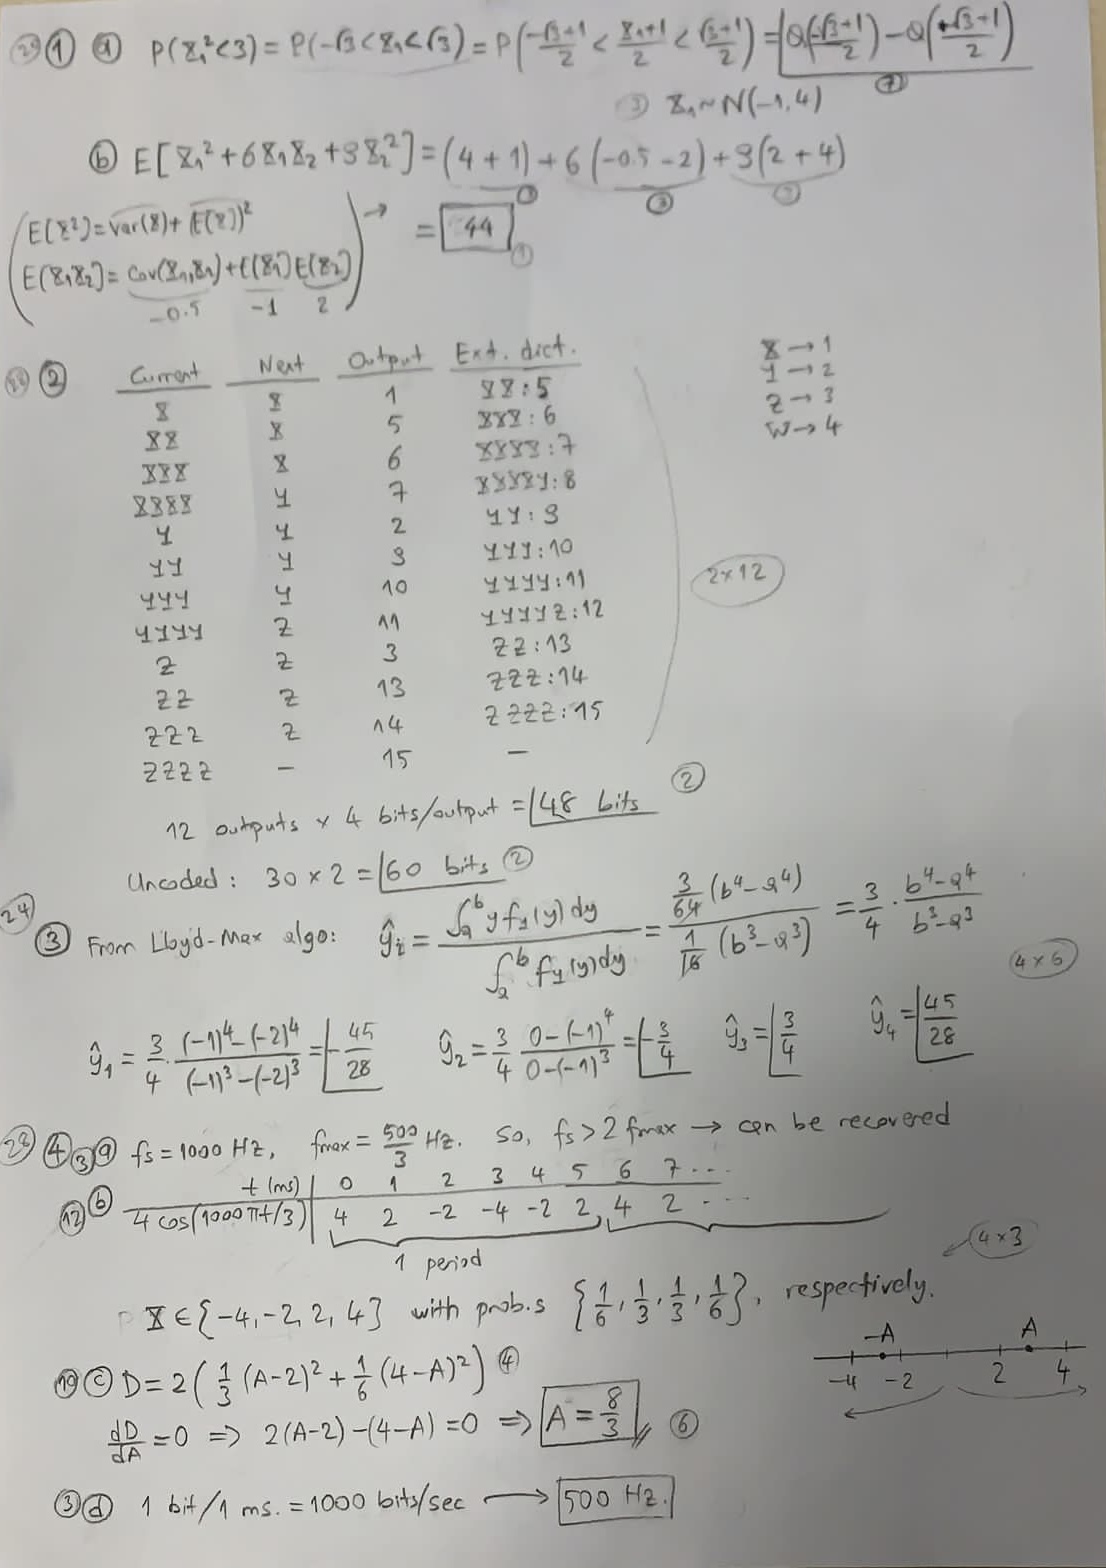 ① ⓐ P(X₁²<3) = P(-√3<X₁<√3) = P(-√3+1/2 < X₁+1/2 < √3+1/2) = Q(-√3+1/2) - Q(√3+1/2) ⑦
③ X₁~N(-1,4)
ⓑ E[X₁²+6X₁X₂+9X₂²] = (4+1)+6(-0.5-2)+9(2+4)
(E(X²)=Var(X)+(E(X))² → = 44 ①
E(X₁X₂)=Cov(X₁,X₂)+E(X₁)E(X₂))
-0.5 -1 2
② Current Next Output Ext. dict.
X X 1 XX:5
XX X 5 XXX:6
XXX X 6 XXXX:7
XXXX Y 7 XXXXY:8
Y Y 2 YY:9
YY Y 9 YYY:10
YYY Y 10 YYYY:11
YYYY Z 11 YYYYZ:12
Z Z 3 ZZ:13
ZZ Z 13 ZZZ:14
ZZZ Z 14 ZZZZ:15
ZZZZ – 15 –
X→1
Y→2
Z→3
W→4
2×12
12 outputs × 4 bits/output = 48 bits ②
Uncoded: 30×2 = 60 bits ②
24
③ From Lloyd-Max algo: ŷᵢ = ∫ₐᵇ y fy(y) dy / ∫ₐᵇ fy(y) dy = 3/64 (b⁴-a⁴) / 1/16 (b³-a³) = 3/4 · b⁴-a⁴/b³-a³
4×6
ŷ₁ = 3/4 · (-1)⁴-(-2)⁴/(-1)³-(-2)³ = -45/28 ŷ₂ = 3/4 0-(-1)⁴/0-(-1)³ = -3/4 ŷ₃ = 3/4 ŷ₄ = 45/28
④ ③ ⓐ fs = 1000 Hz, fmax = 500/3 Hz. So, fs > 2 fmax → can be recovered
⑫ ⓑ t (ms) 0 1 2 3 4 5 6 7 ...
4 cos(1000πt/3) 4 2 -2 -4 -2 2, 4 2 ...
1 period
4×3
X ∈ {-4,-2,2,4} with prob.s {1/6, 1/3, 1/3, 1/6}, respectively.
-A A
-4 -2 2 4
⑩ ⓒ D = 2(1/3 (A-2)² + 1/6 (4-A)²) ④
dD/dA = 0 ⇒ 2(A-2)-(4-A) = 0 ⇒ A = 8/3 ⑥
③ ⓓ 1 bit/1 ms. = 1000 bits/sec → 500 Hz.